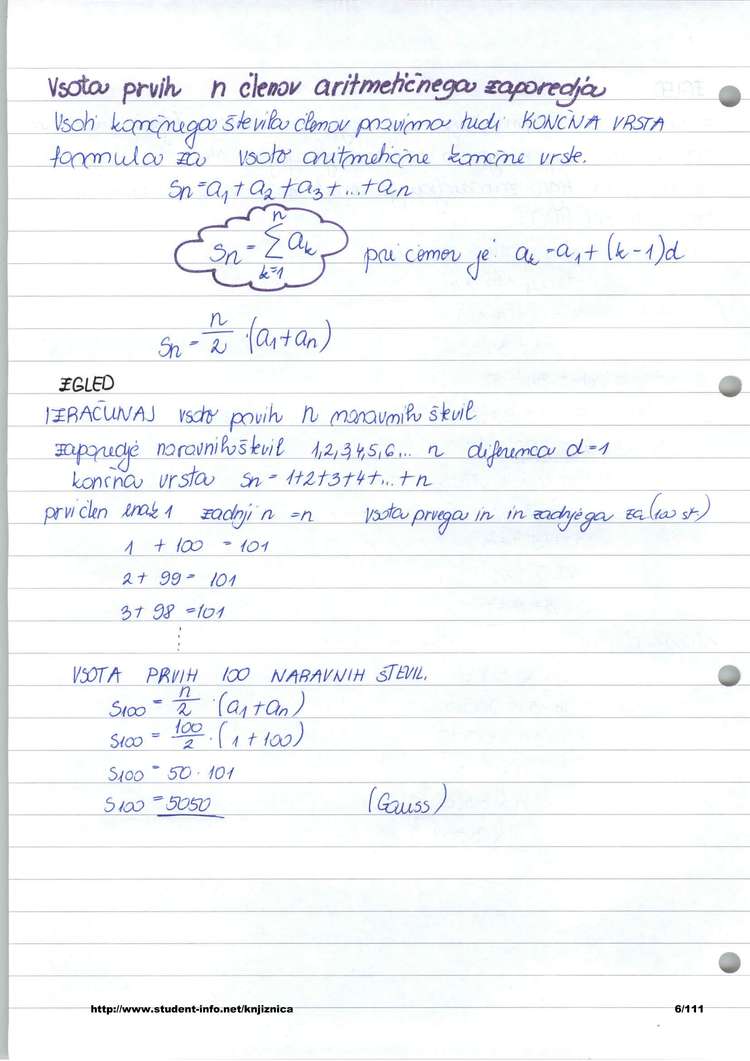 Vsota prvih n členov aritmetičnega zaporedja
Vsoti končnega števila členov pravimo tudi KONČNA VRSTA
formula za vsoto aritmetične končne vrste.
Sn = a₁ + a₂ + a₃ + ... + an
Sn = ∑ₖ₌₁ⁿ aₖ pri čemer je: aₖ = a₁ + (k-1)d
Sn = n/2 · (a₁ + an)
ZGLED
IZRAČUNAJ vsoto prvih n naravnih števil
zaporedje naravnih števil 1,2,3,4,5,6,... n diferenca d=1
končna vrsta Sn = 1+2+3+4+...+n
prvi člen enak 1 zadnji n = n vsota prvega in in zadnjega za (100 št.)
1 + 100 = 101
2 + 99 = 101
3 + 98 = 101
⋮
VSOTA PRVIH 100 NARAVNIH ŠTEVIL.
S100 = n/2 · (a₁ + an)
S100 = 100/2 · (1 + 100)
S100 = 50 · 101
S100 = 5050 (Gauss)
http://www.student-info.net/knjiznica 6/111